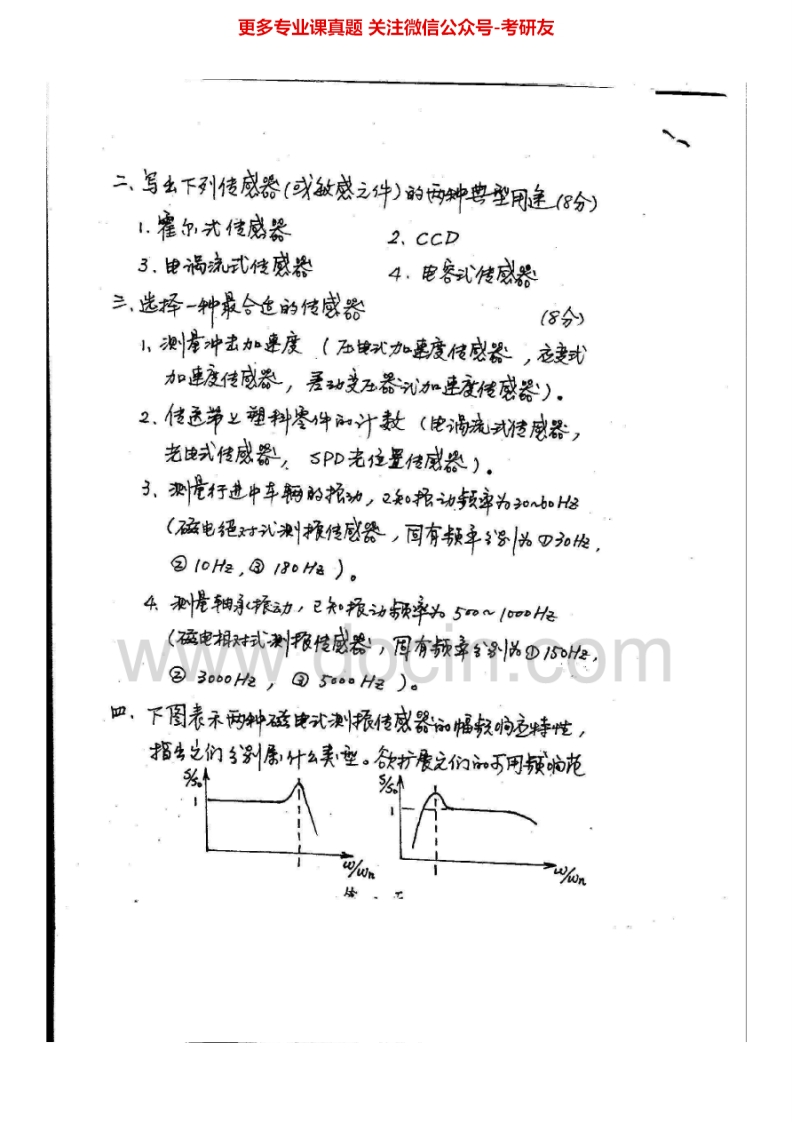 更多专业课真题 关注微信公众号-考研友
二、写出下列传感器(或敏感元件)的两种典型用途(8分)
1. 霍尔式传感器 2. CCD
3. 电涡流式传感器 4. 电容式传感器
三、选择一种最合适的传感器 (8分)
1、测量冲击加速度 (压电式加速度传感器,应变式
加速度传感器,差动变压器式加速度传感器)。
2、传送带上塑料零件的计数 (电涡流式传感器,
光电式传感器, SPD光位置传感器)。
3、测量行进中车辆的振动,已知振动频率为30~60Hz
(磁电绝对式测振传感器,固有频率分别为①30Hz,
②10Hz,③180Hz)。
4. 测量轴承振动,已知振动频率为500~1000Hz
(磁电相对式测振传感器,固有频率分别为①150Hz,
②3000Hz,③5000Hz)。
www.docin.com
四、下图表示两种磁电式测振传感器的幅频响应特性,
指出它们分别属什么类型。欲扩展它们的可用频响范
S/S₀ S/S₀
1 1
ω/ωn ω/ωn